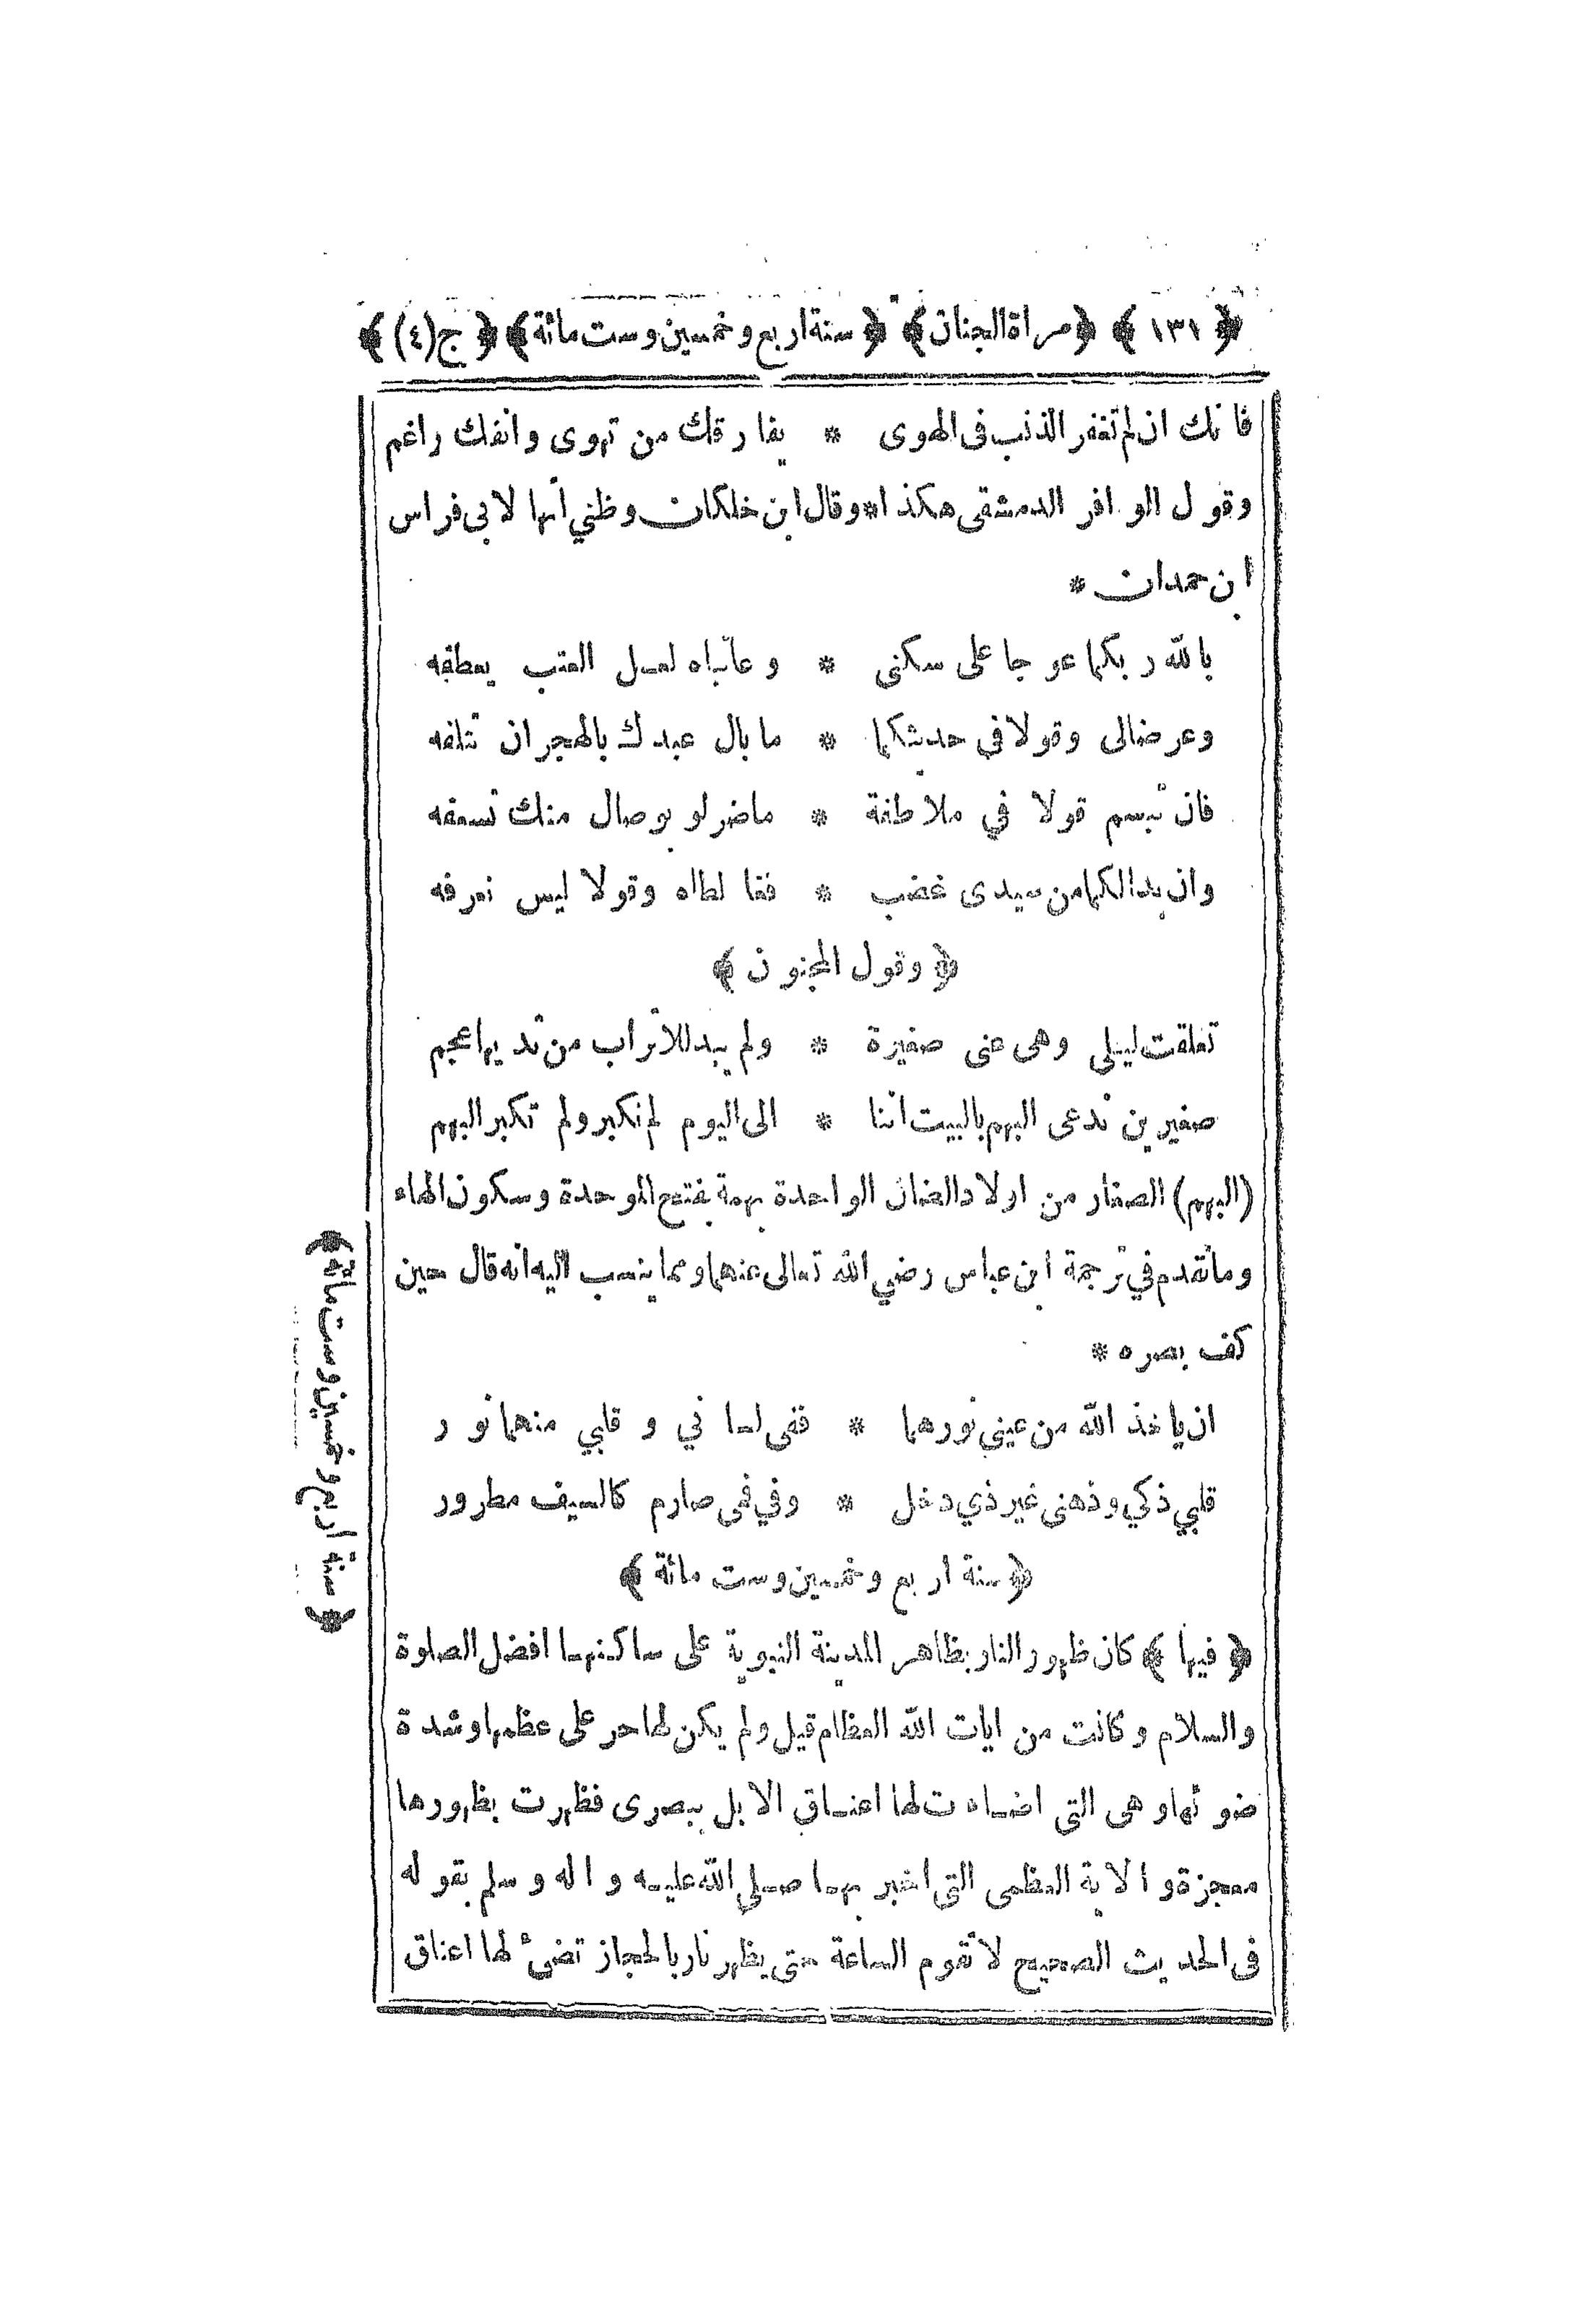 ﴿ ١٣١ ﴾ ﴿ مراة الجنان ﴾ ﴿ سنة اربع وخمسين وست مائة ﴾ ﴿ ج (٤) ﴾
فانك ان لم تغفر الذنب فى الهوى * يفارقك من تهوى وانفك راغم
وقول الوافر الدمشقى هكذا * وقال ابن خلكان وظني أنها لابى فراس
ابن حمدان *
بالله ربكما عوجا على سكنى * وعاتباه لعل العتب يعطفه
وعرضالى وقولا في حديثكما * ما بال عبدك بالهجران تتلفه
فان تبسم قولا في ملاطفة * ماضر لو بوصال منك تسعفه
وان بدالكما من سيدى غضب * فغا لطاه وقولا ليس نعرفه
﴿ وقول المجنون ﴾
تعلقت ليلى وهى عنى صغيرة * ولم يبد للاتراب من ثديها عجم
صغيرين ندعى البهم بالبيت اننا * الى اليوم لم نكبر ولم تكبر البهم
(البهم) الصغار من اولاد الضان الواحدة بهمة بفتح الموحدة وسكون الهاء
وماتقدم في ترجمة ابن عباس رضي الله تعالى عنهما ومما ينسب اليه انه قال حين
كف بصره *
ان ياخذ الله من عيني نورهما * ففى لسانى وقلبي منهما نور
قلبي ذكي وذهنى غير ذي دخل * وفي فمى صارم كالسيف مطرور
﴿ سنة اربع وخمسين وست مائة ﴾
﴿ فيها ﴾ كان ظهور النار بظاهر المدينة النبوية على ساكنها افضل الصلوة
والسلام وكانت من ايات الله العظام قيل ولم يكن لها حر على عظمها وشدة
ضوئها وهى التى اضاءت لها اعناق الابل ببصرى فظهرت بظهورها
معجزة والاية العظمى التى اخبر بها صلى الله عليه واله وسلم بقوله
فى الحديث الصحيح لا تقوم الساعة حتى يظهر نار بالحجاز تضئ لها اعناق
﴿ سنة أربع وخمسين وست مائة ﴾